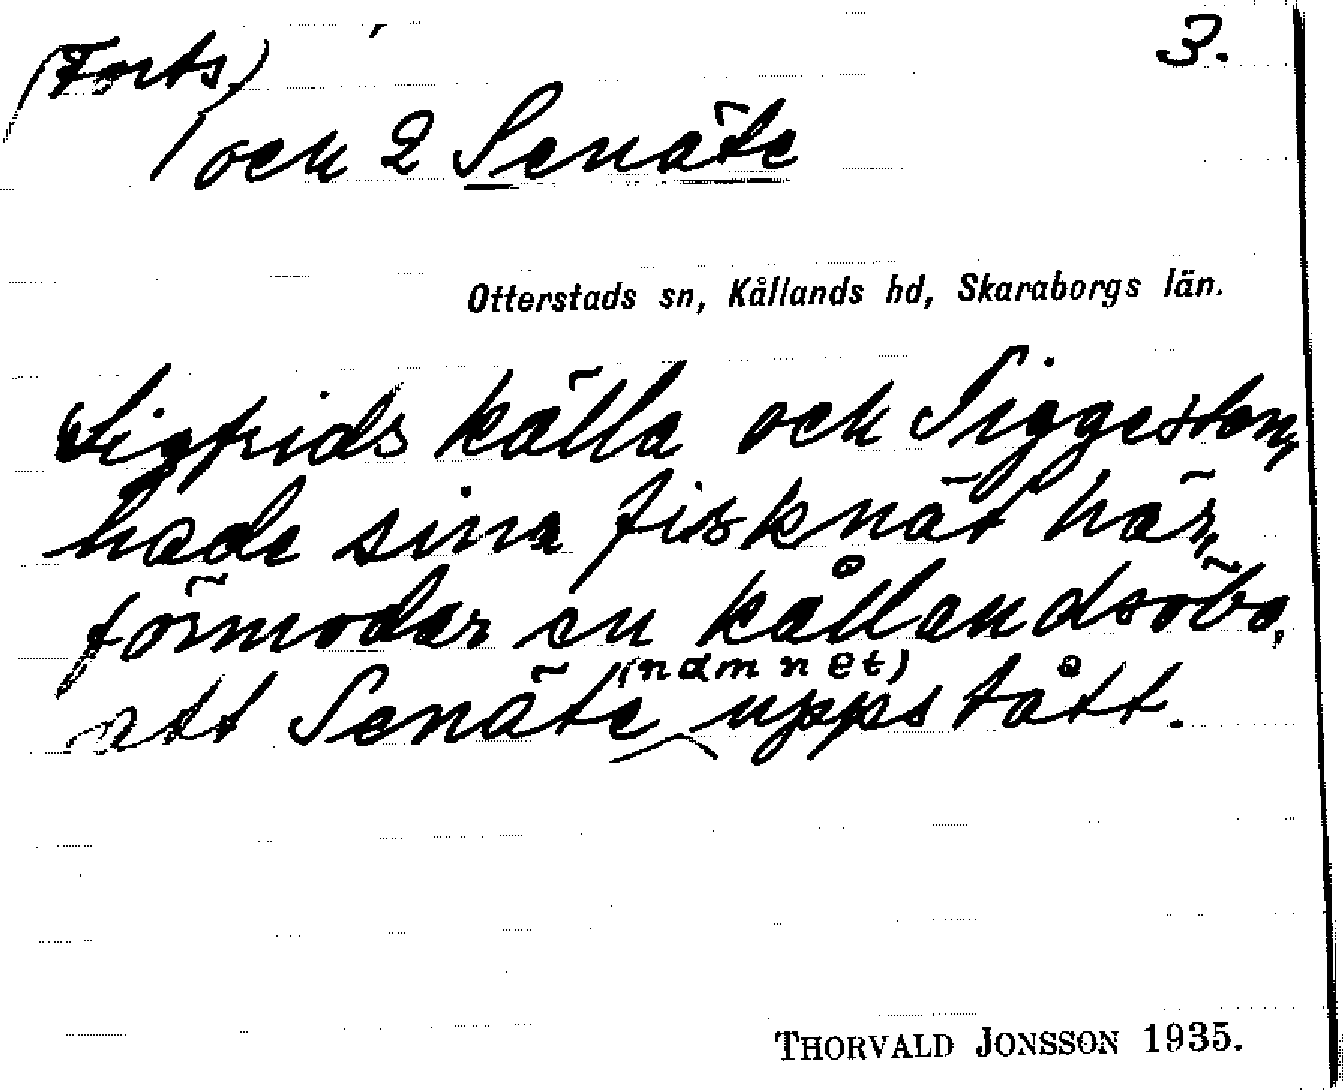 3.
(Forts)
1 och 2 Senäte
Otterstads sn, Kållands hd, Skaraborgs län.
Sigfrids källa och Siggesten,
hade sina fisknät här,
förmodar en kållandsöbo,
att Senäte (namnet) uppstått.
THORVALD JONSSON 1935.